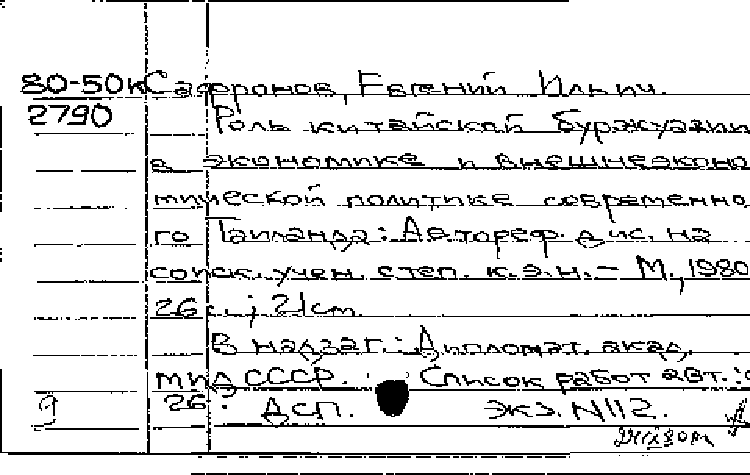 80-50к Сафронов, Евгений Ильич.
2790 Роль китайской буржуазии
в экономике и внешнеэконо
мической политике современно
го Таиланда: Автореф. дис. на
соиск. учен. степ. к.э.н. – М., 1980
26 с.; 21 см.
В надзаг.: Дипломат. акад.
МИД СССР. Список работ авт.: с
26.
ДСП. Экз. N112.
9